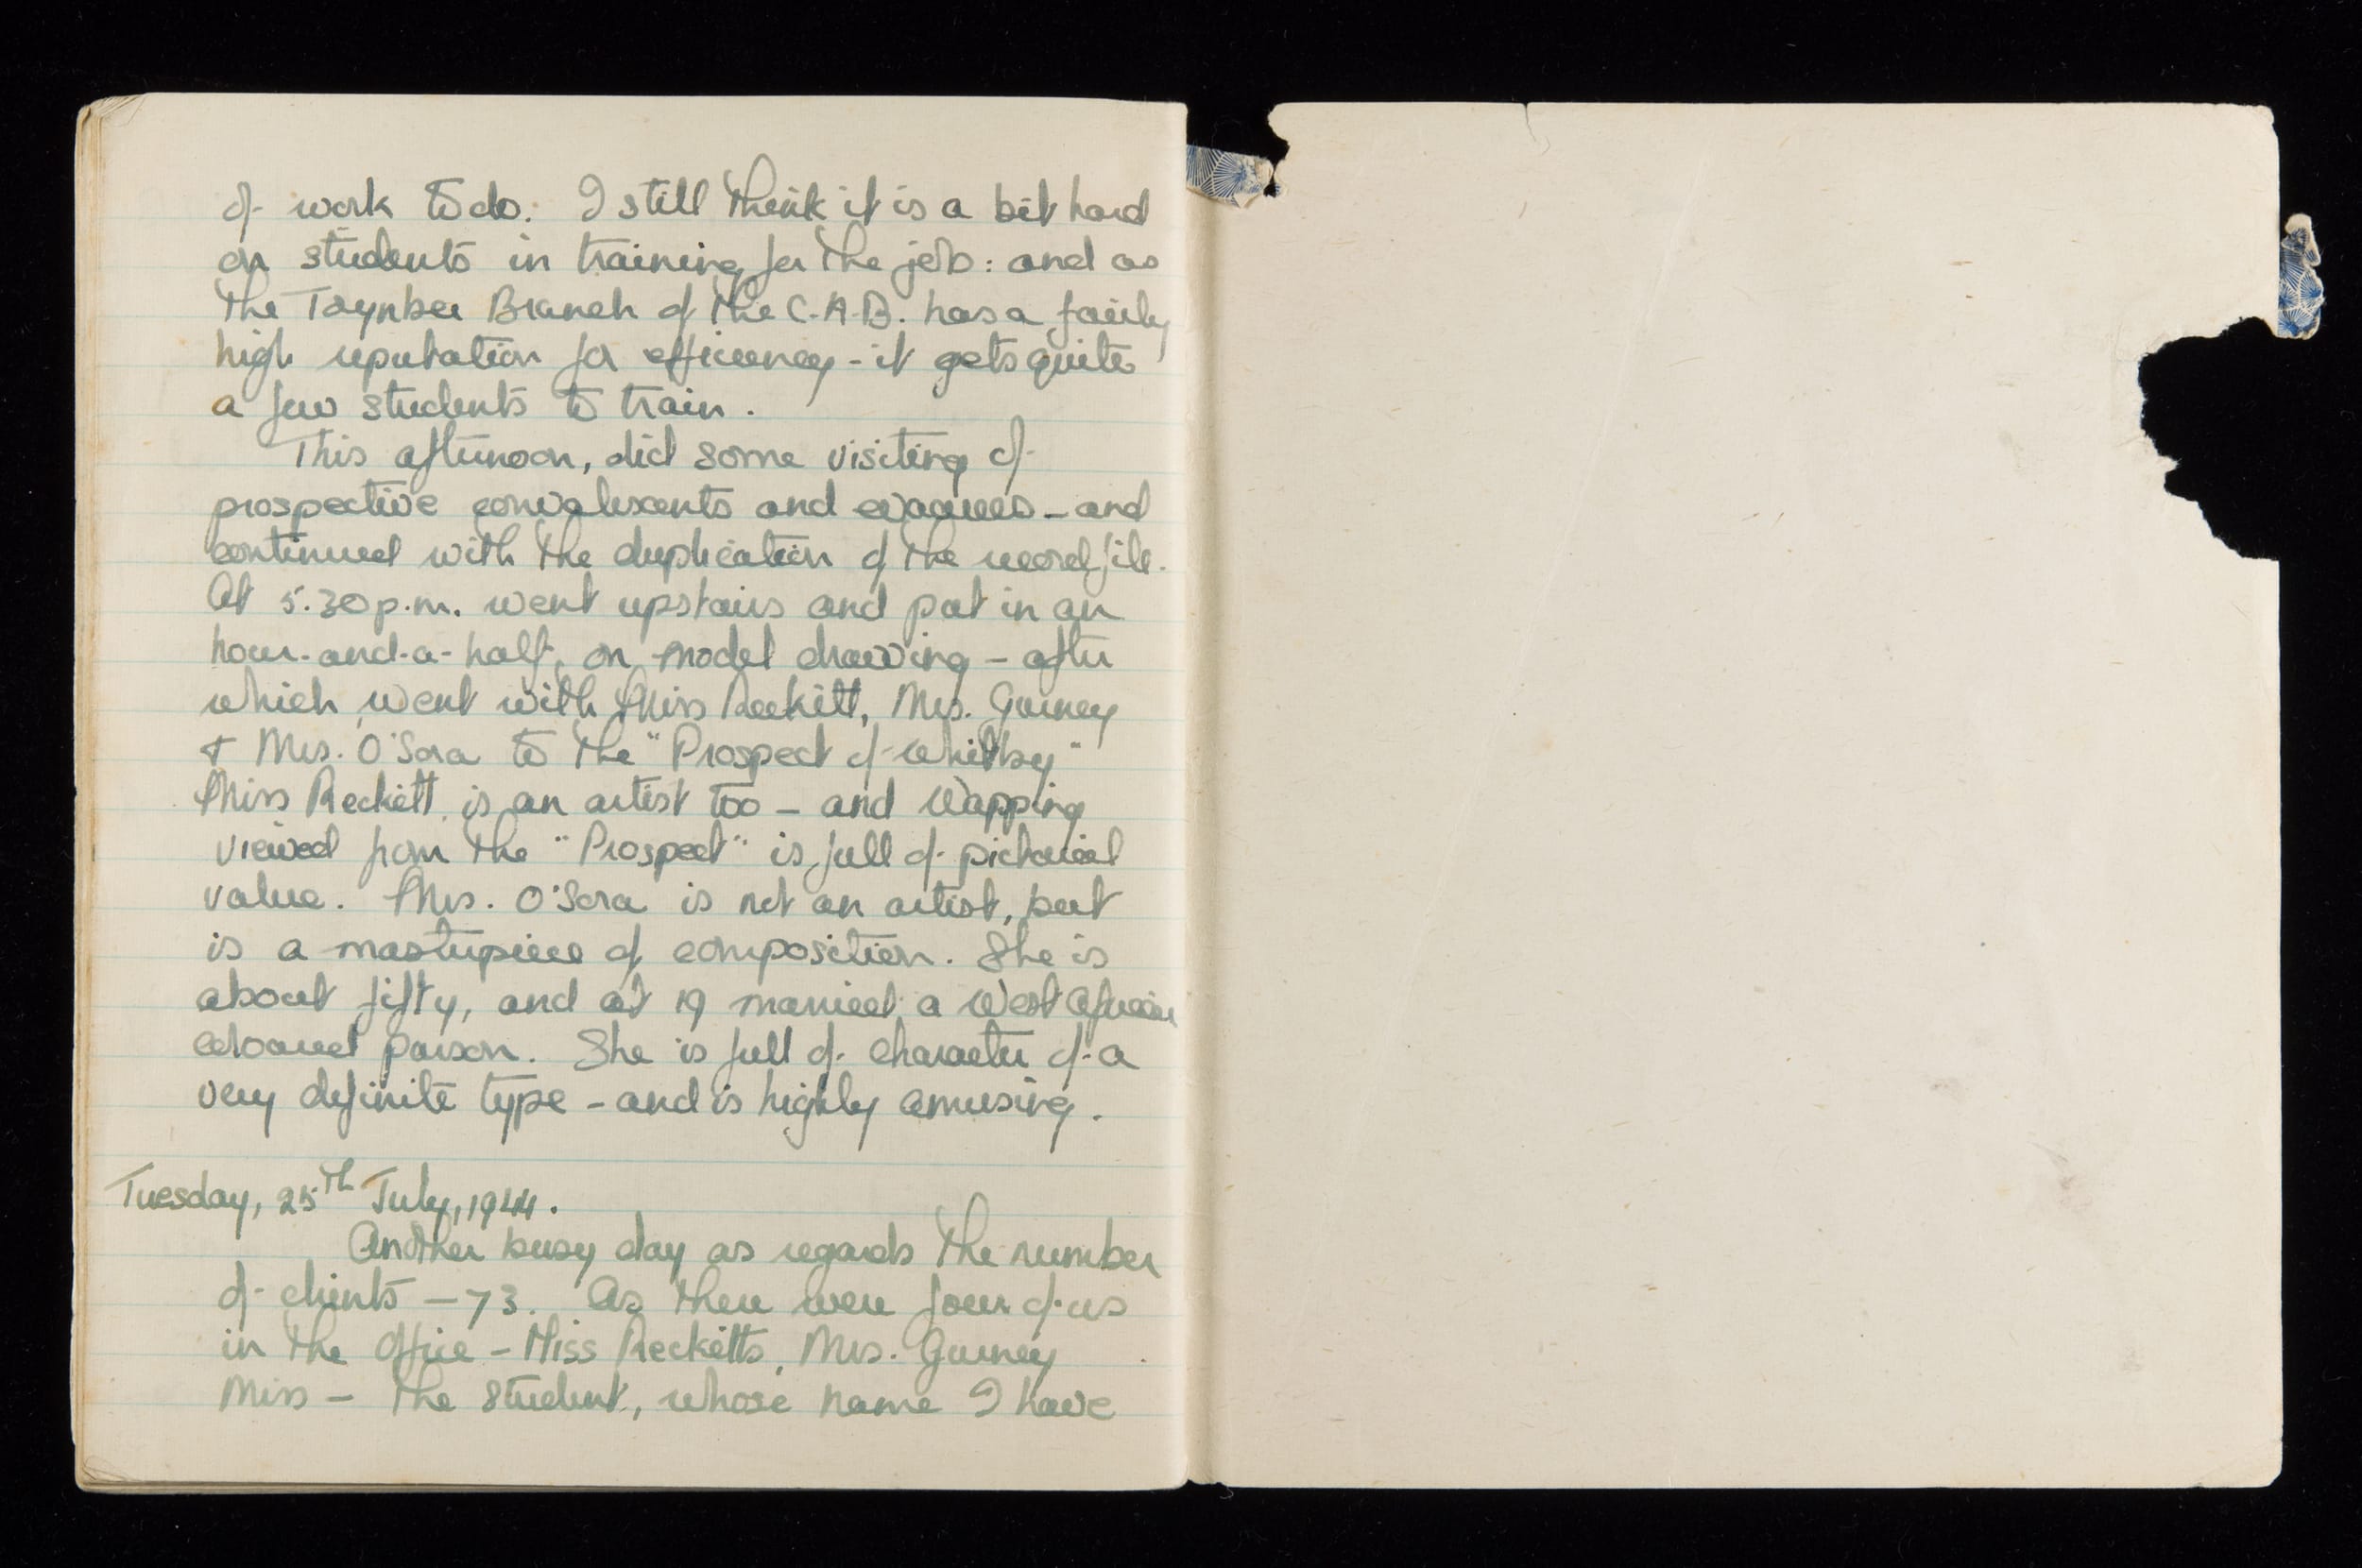 of work to do. I still think it is a bit hard
on students in training for the job: and as
the Toynbee Branch of the C.A.B. has a fairly
high reputation for efficiency - it gets quite
a few students to train.
This afternoon, did some visiting of
prospective convalescents and evacuees - and
continued with the duplication of the record file.
At 5.30 p.m. went upstairs and put in an
hour-and-a-half, on model drawing - after
which, went with Miss Reckitt, Mrs. Gurney
& Mrs. O'Sora to the "Prospect of Whitby"
Miss Reckitt, is an artist too - and Wapping
viewed from the "Prospect" is full of pictorial
value. Mrs. O'Sora is not an artist, but
is a masterpiece of composition. She is
about fifty, and at 19 married a West African
coloured parson. She is full of character of a
very definite type - and is highly amusing.
Tuesday, 25th July, 1944.
Another busy day as regards the number
of clients - 73. As there were four of us
in the Office - Miss Recketts, Mrs. Gurney
Miss - the student, whose name I have